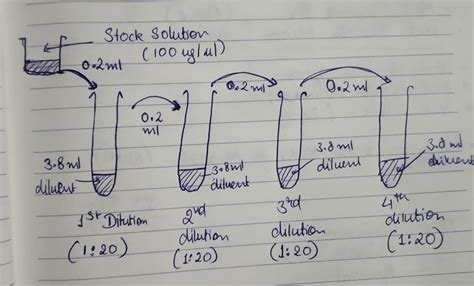 Stock Solution
(100 ug/ul)
0.2ml
0.2
ml
0.2ml
0.2ml
3.8ml
diluent
3.8ml
diluent
3.8ml
diluent
3.8ml
diluent
1st Dilution
(1:20)
2nd
dilution
(1:20)
3rd
dilution
(1:20)
4th
dilution
(1:20)